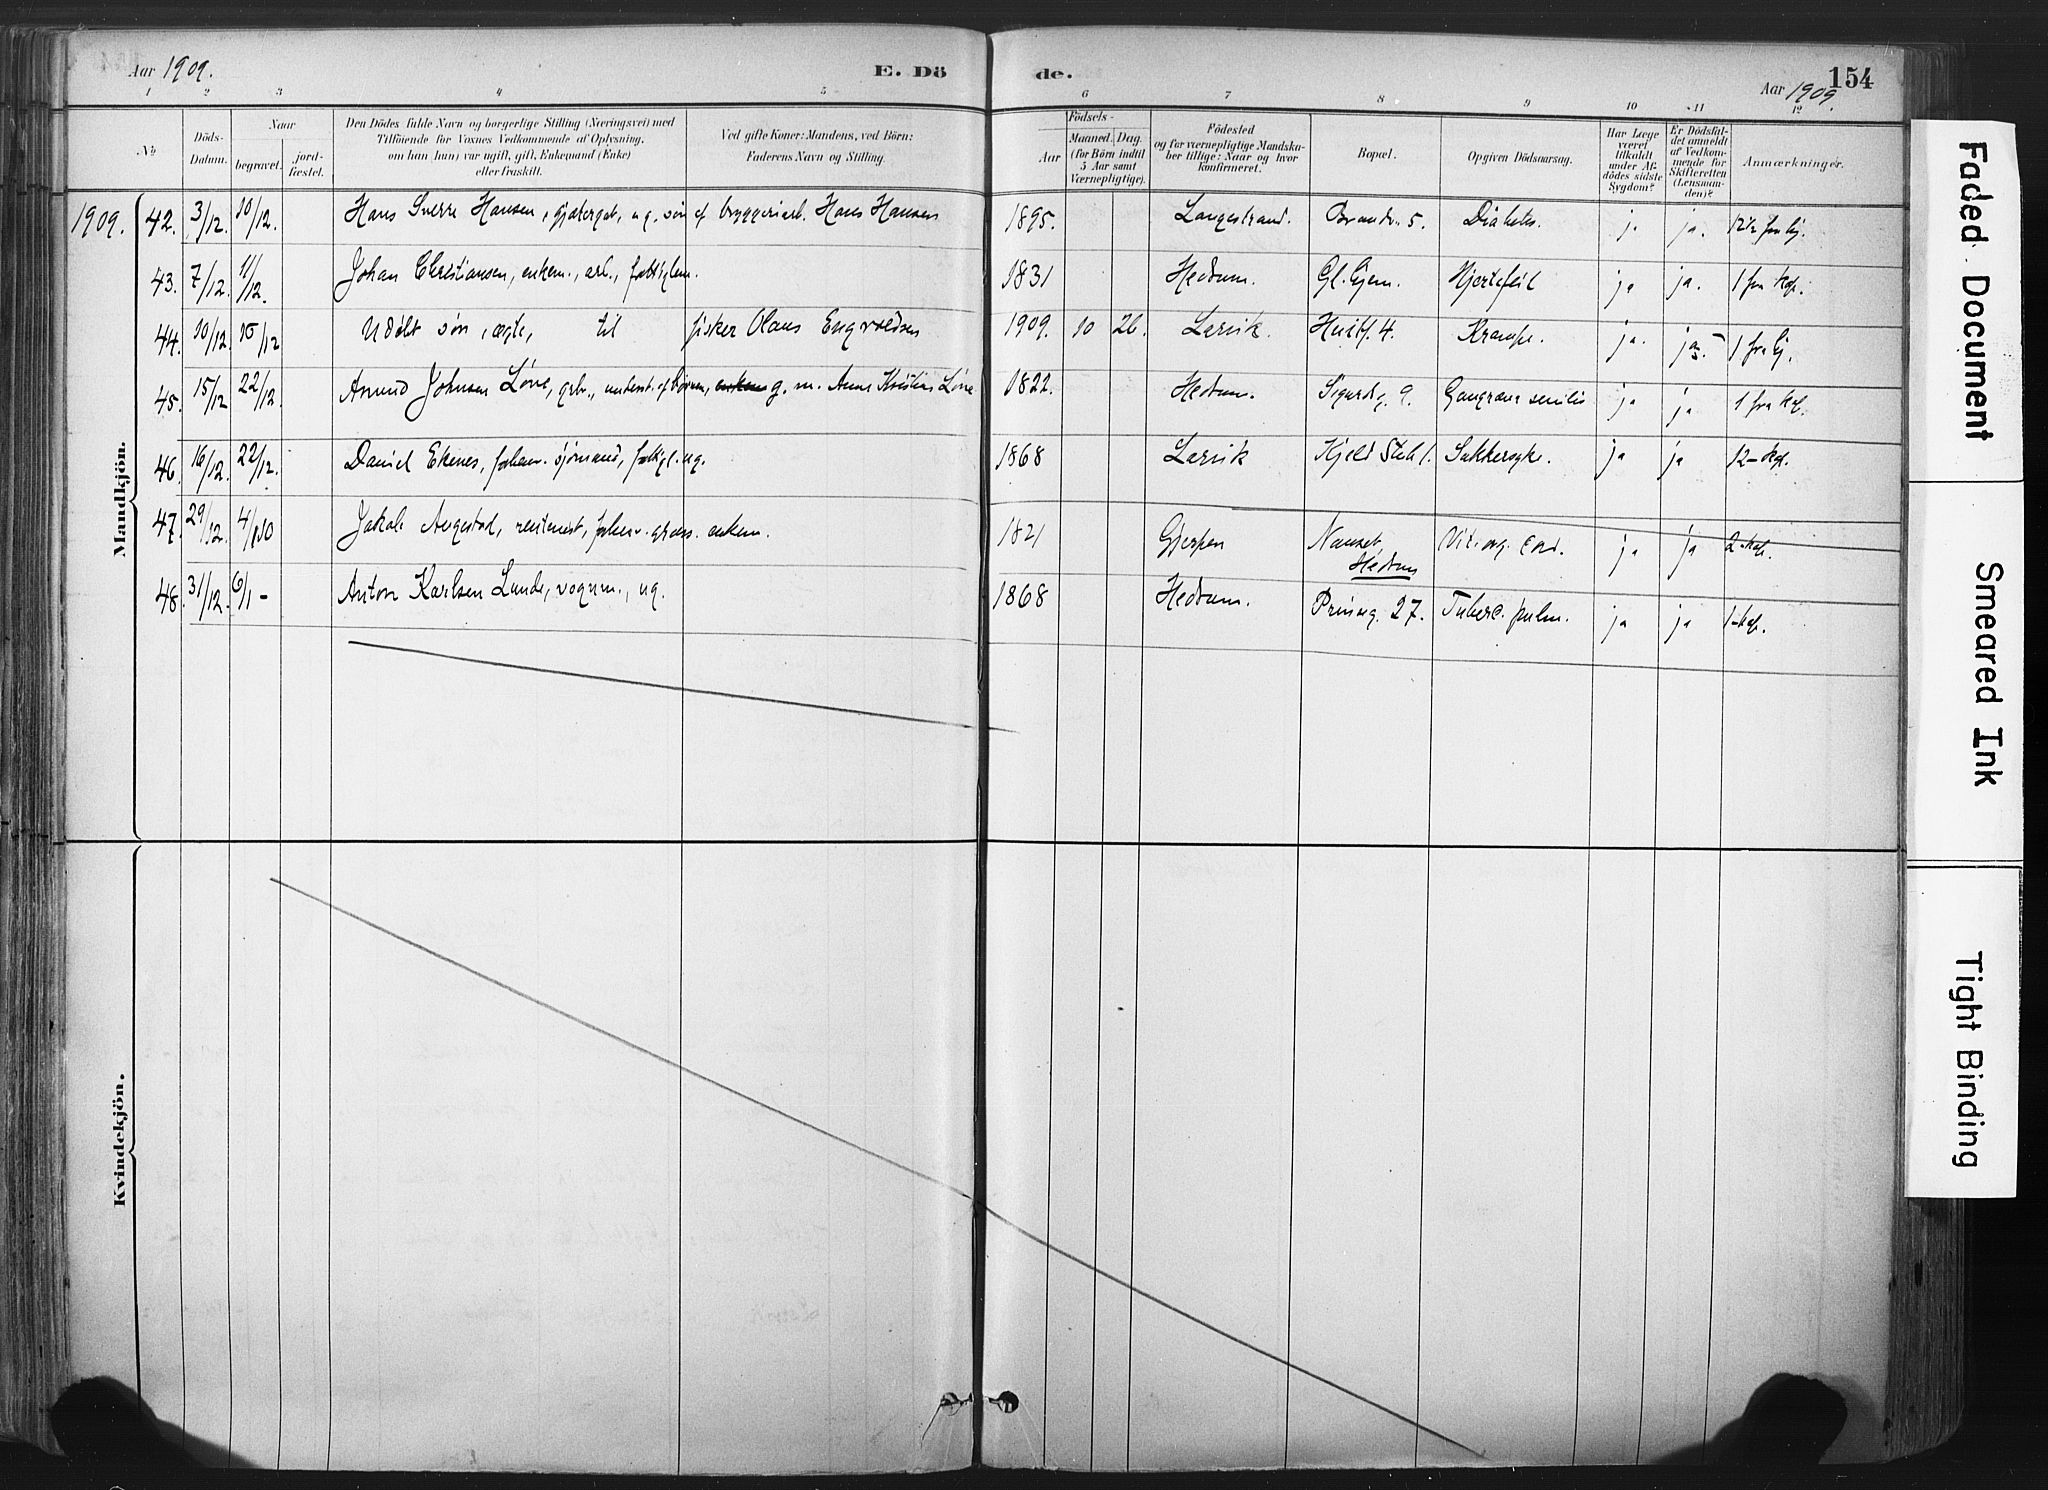 Aar 1909.
E. Dö
de.
154
Aar 1909.
1 2 3 4 5 6 7 8 9 10 11 12
No
Döds-Datum.
Naar
begravet.
jord-fæstet.
Den Dödes fulde Navn og borgerlige Stilling (Næringsvei) med
Tilföiende for Voxnes Vedkommende af Oplysning,
om han (hun) var ugift, gift, Enkemand (Enke)
eller fraskilt.
Ved gifte Koner: Mandens, ved Börn:
Faderens Navn og Stilling.
Födsels-
Aar
Maaned. Dag.
(for Börn indtil
5 Aar samt
Værnepligtige).
Födested
og for værnepligtige Mandska-
ber tillige: Naar og hvor
konfirmeret.
Bopæl.
Opgiven Dödsaarsag.
Har Læge
været
tilkaldt
under Af-
dödes sidste
Sygdom?
Er Dödsfal-
det anmeldt
af Vedkom-
mende for
Skifteretten
(Lensman-
den)?
Anmærkninger.
Mandkjön.
1909. 42. 3/12. 10/12. Hans Sverre Hansen, gjætergut, ug. søn af bryggeriarb. Hans Hansen 1895. Langestrand. 5. Diabetes. ja ja.
43. 7/12. 11/12. Johan Christiansen, enkem., arb., fattiglem. 1831 Hedrum. Gl. hjem. Hjertefeil ja ja. 1 fra kap.
44. 10/12. 15/12 Udøbt søn, ægte, til fisker Olaus Engvoldsen 1909. 10 26. Larvik. Huitf. 4. Krampe. ja. ja. 1 fra hj.
45. 15/12 22/12. Amund Johnsen Løve, underst. af byen, g. m. Anne Kristine Løve 1822. Hedrum. Sigurdsg. 9. Gangræna senilis ja ja 1 fra kap.
46. 16/12. 22/12. Daniel Ekenes, forhenv. sjømand, fattigl. ug. 1868 Larvik Kjeld Stub f. Sukkersyke. ja ja 12 - kap.
47. 29/12. 4/1 10 Jakob Augestad, rentenist, forhenv. enkem. 1821 Gjerpen Nanset Hedrum Vit. org. cord. ja ja 2 - kap.
48. 31/12. 6/1 - Anton Karlsen Lunde, vognm., ug. 1868 Hedrum. Prinseg. 27. Tuberc. pulm. ja ja 1 - kap.
Kvindekjön.
Faded Document
Smeared Ink
Tight Binding